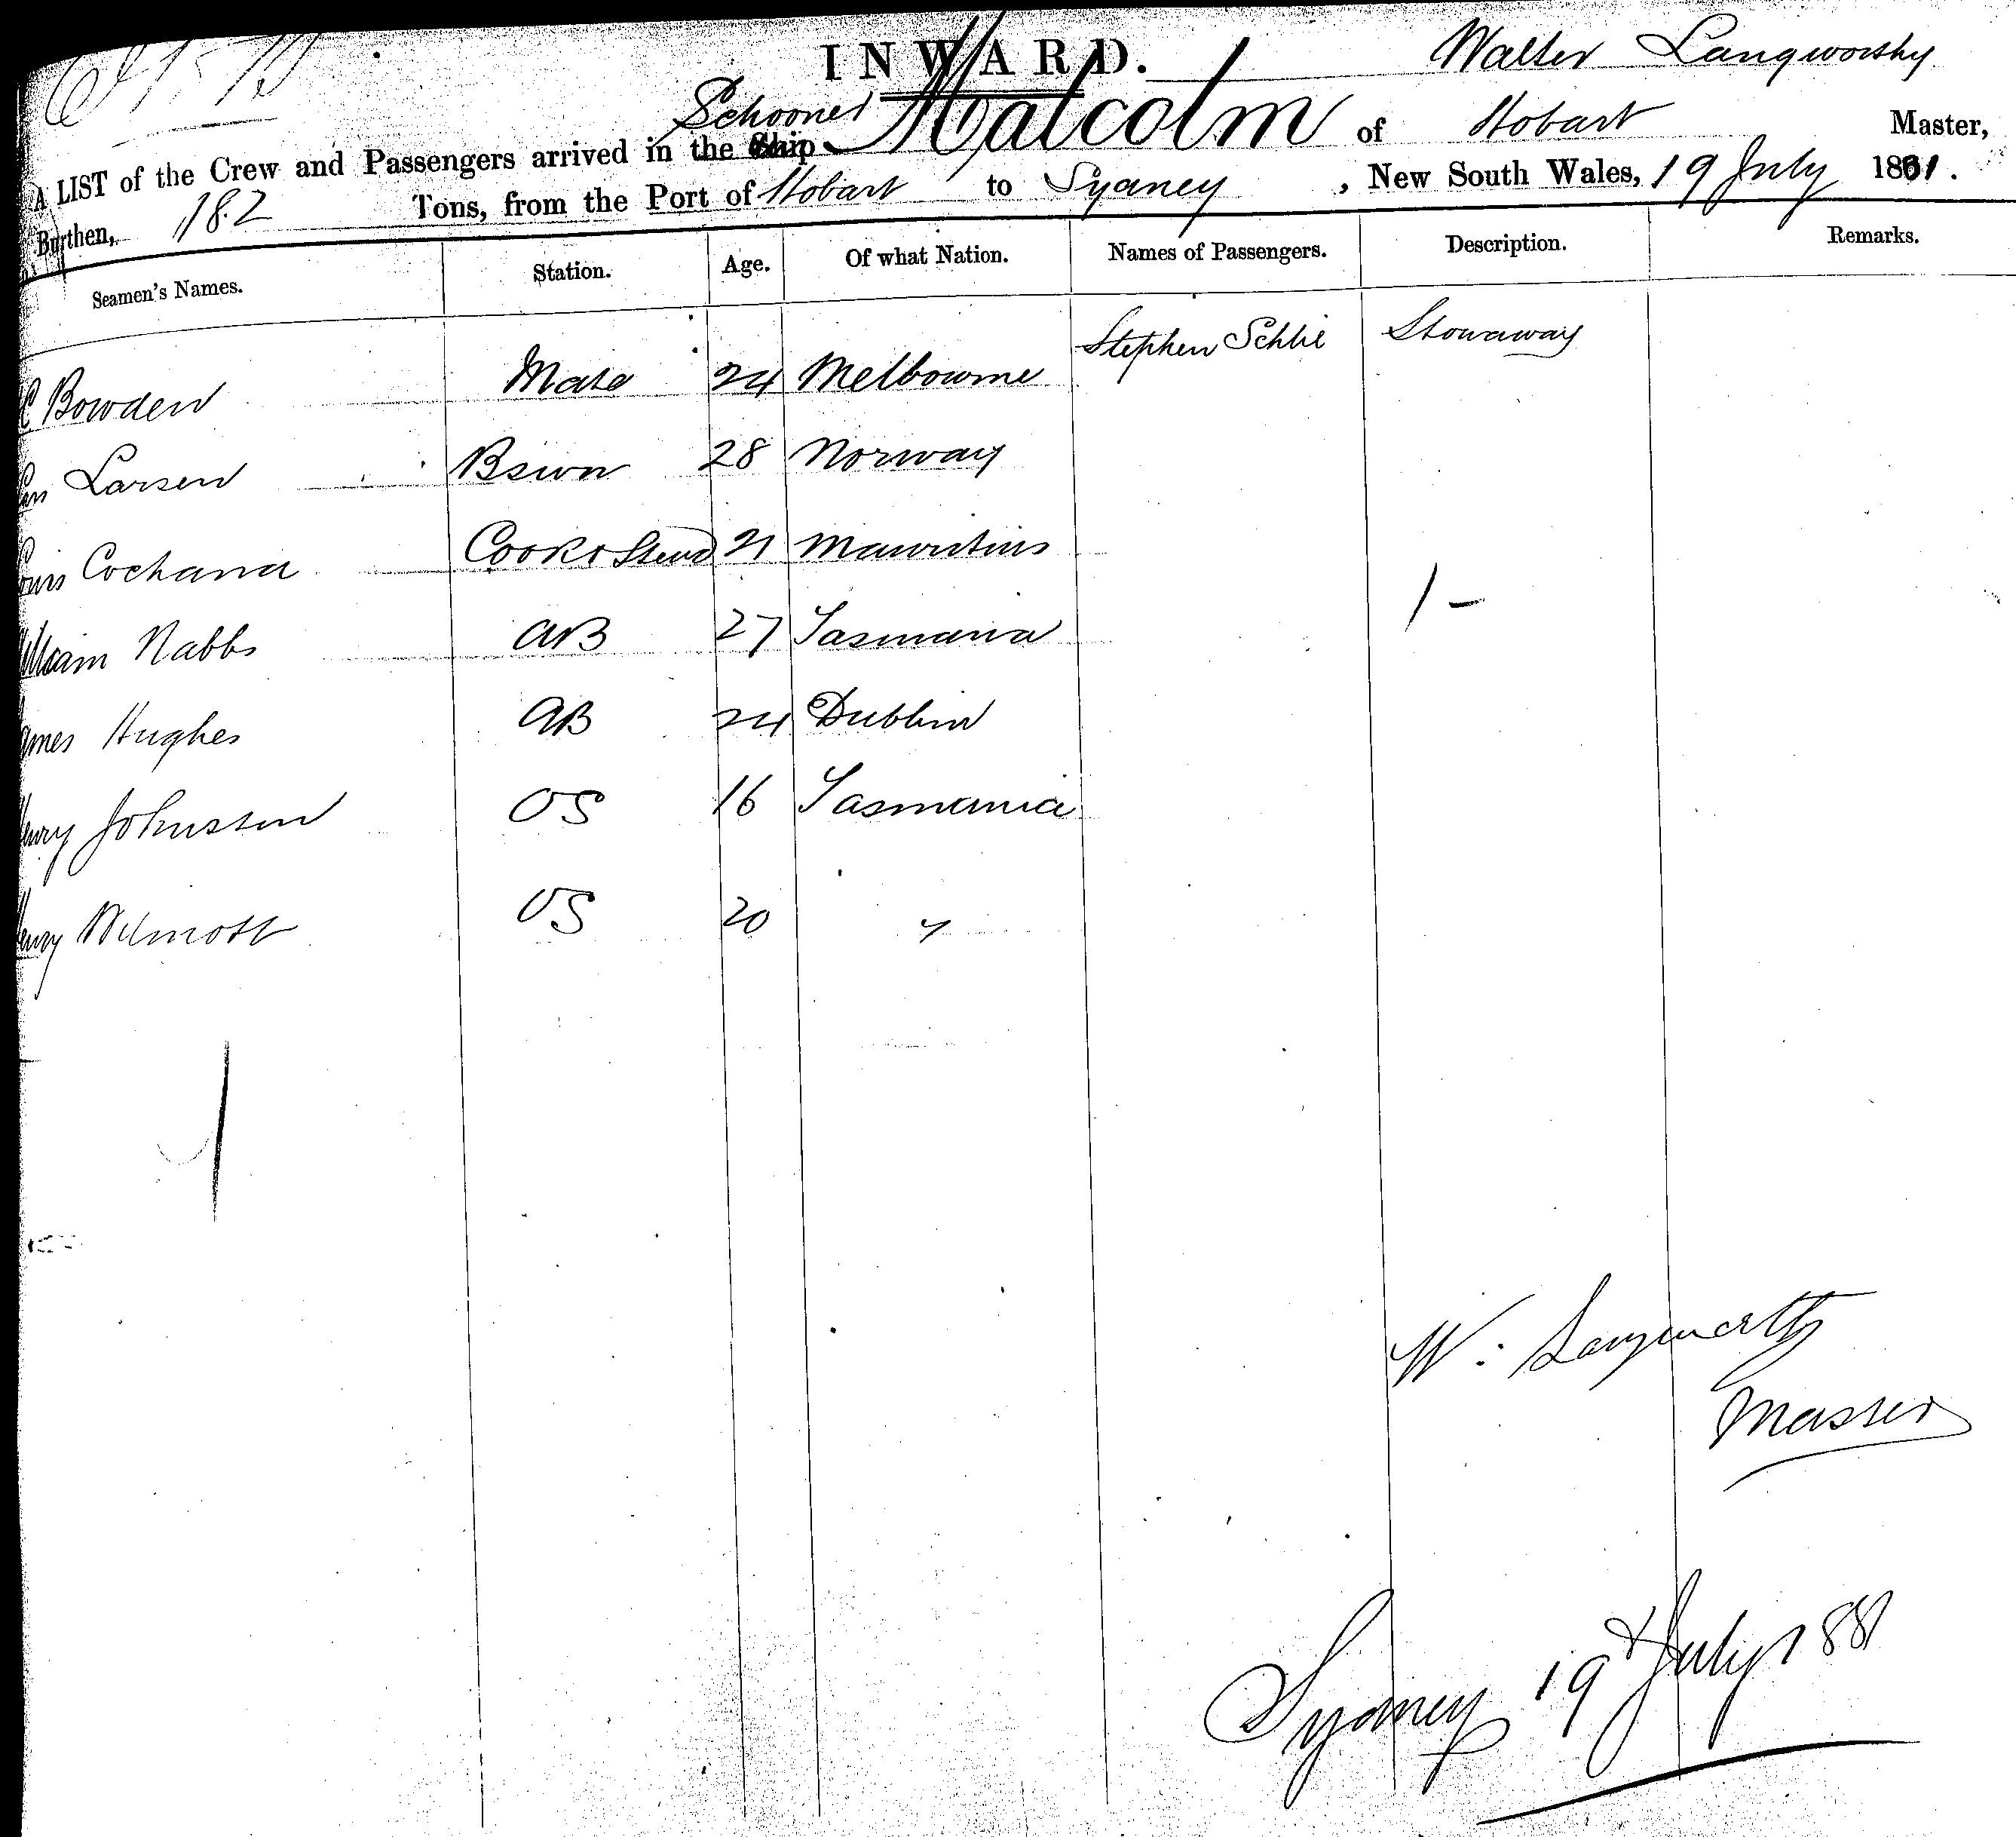 INWARD.
Walter Langworthy
A LIST of the Crew and Passengers arrived in the Schooner Ship Malcolm of Hobart Master,
Burthen, 182 Tons, from the Port of Hobart to Sydney, New South Wales, 19 July 1881.
Seamen's Names. Station. Age. Of what Nation. Names of Passengers. Description. Remarks.
C Bowden Mate 24 Melbourne Stephen Schlie Stowaway
Larsen Bswn 28 Norway
ouis Cochana Cook & Stewd 21 Mauritius
illiam Nabbs AB 27 Tasmania
1 -
ames Hughes AB 24 Dublin
enry Johnston OS 16 Tasmania
enry Wilmott OS 20 "
W. Langworthy
Master
Sydney 19th July 1881